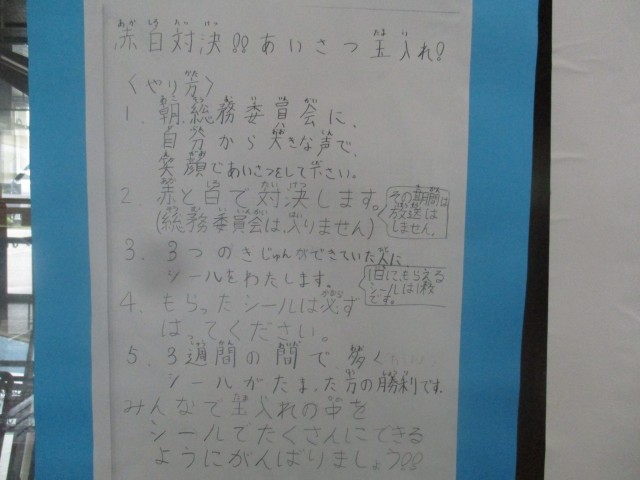 赤白対決!!あいさつ玉入れ!
〈やり方〉
1. 朝、総務委員会に、
自分から大きな声で、
笑顔であいさつをして下さい。
2. 赤と白で対決します。
(総務委員会は入りません)
その期間は
放送は
しません。
3. 3つのきじゅんができていた人に、
シールをわたします。
1日に、もらえる
シールは1枚
です。
4. もらったシールは必ず
はってください。
5. 3週間の間で、多く
シールがたまった方の勝利です。
みんなで玉入れの中を
シールでたくさんにできる
ようにがんばりましょう!!